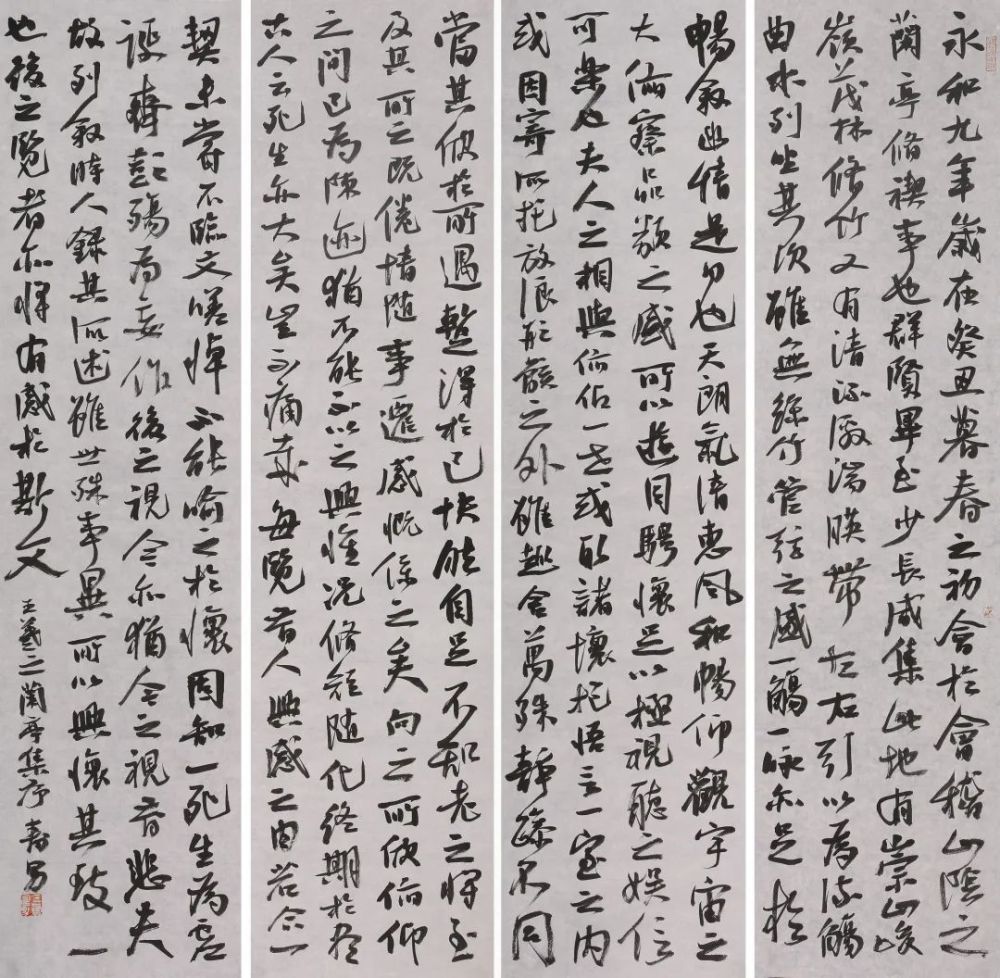 永和九年歲在癸丑暮春之初會於會稽山陰之
蘭亭脩禊事也群賢畢至少長咸集此地有崇山峻
嶺茂林修竹又有清流激湍暎帶左右引以為流觴
曲水列坐其次雖無絲竹管弦之盛一觴一詠亦足於
暢敘幽情是日也天朗氣清惠風和暢仰觀宇宙之
大俯察品類之盛所以遊目騁懷足以極視聽之娛信
可樂也夫人之相與俯仰一世或取諸懷抱悟言一室之內
或因寄所托放浪形骸之外雖趣舍萬殊靜躁不同
當其欣於所遇暫得於己快然自足不知老之將至
及其所之既倦情隨事遷感慨係之矣向之所欣俯仰
之間已為陳迹猶不能不以之興懷況修短隨化終期於盡
古人云死生亦大矣豈不痛哉每覽昔人興感之由若合一
契未嘗不臨文嗟悼不能喻之於懷固知一死生為虛
誕齊彭殤為妄作後之視今亦猶今之視昔悲夫
故列敘時人錄其所述雖世殊事異所以興懷其致一
也後之覽者亦將有感於斯文
王羲之蘭亭集序